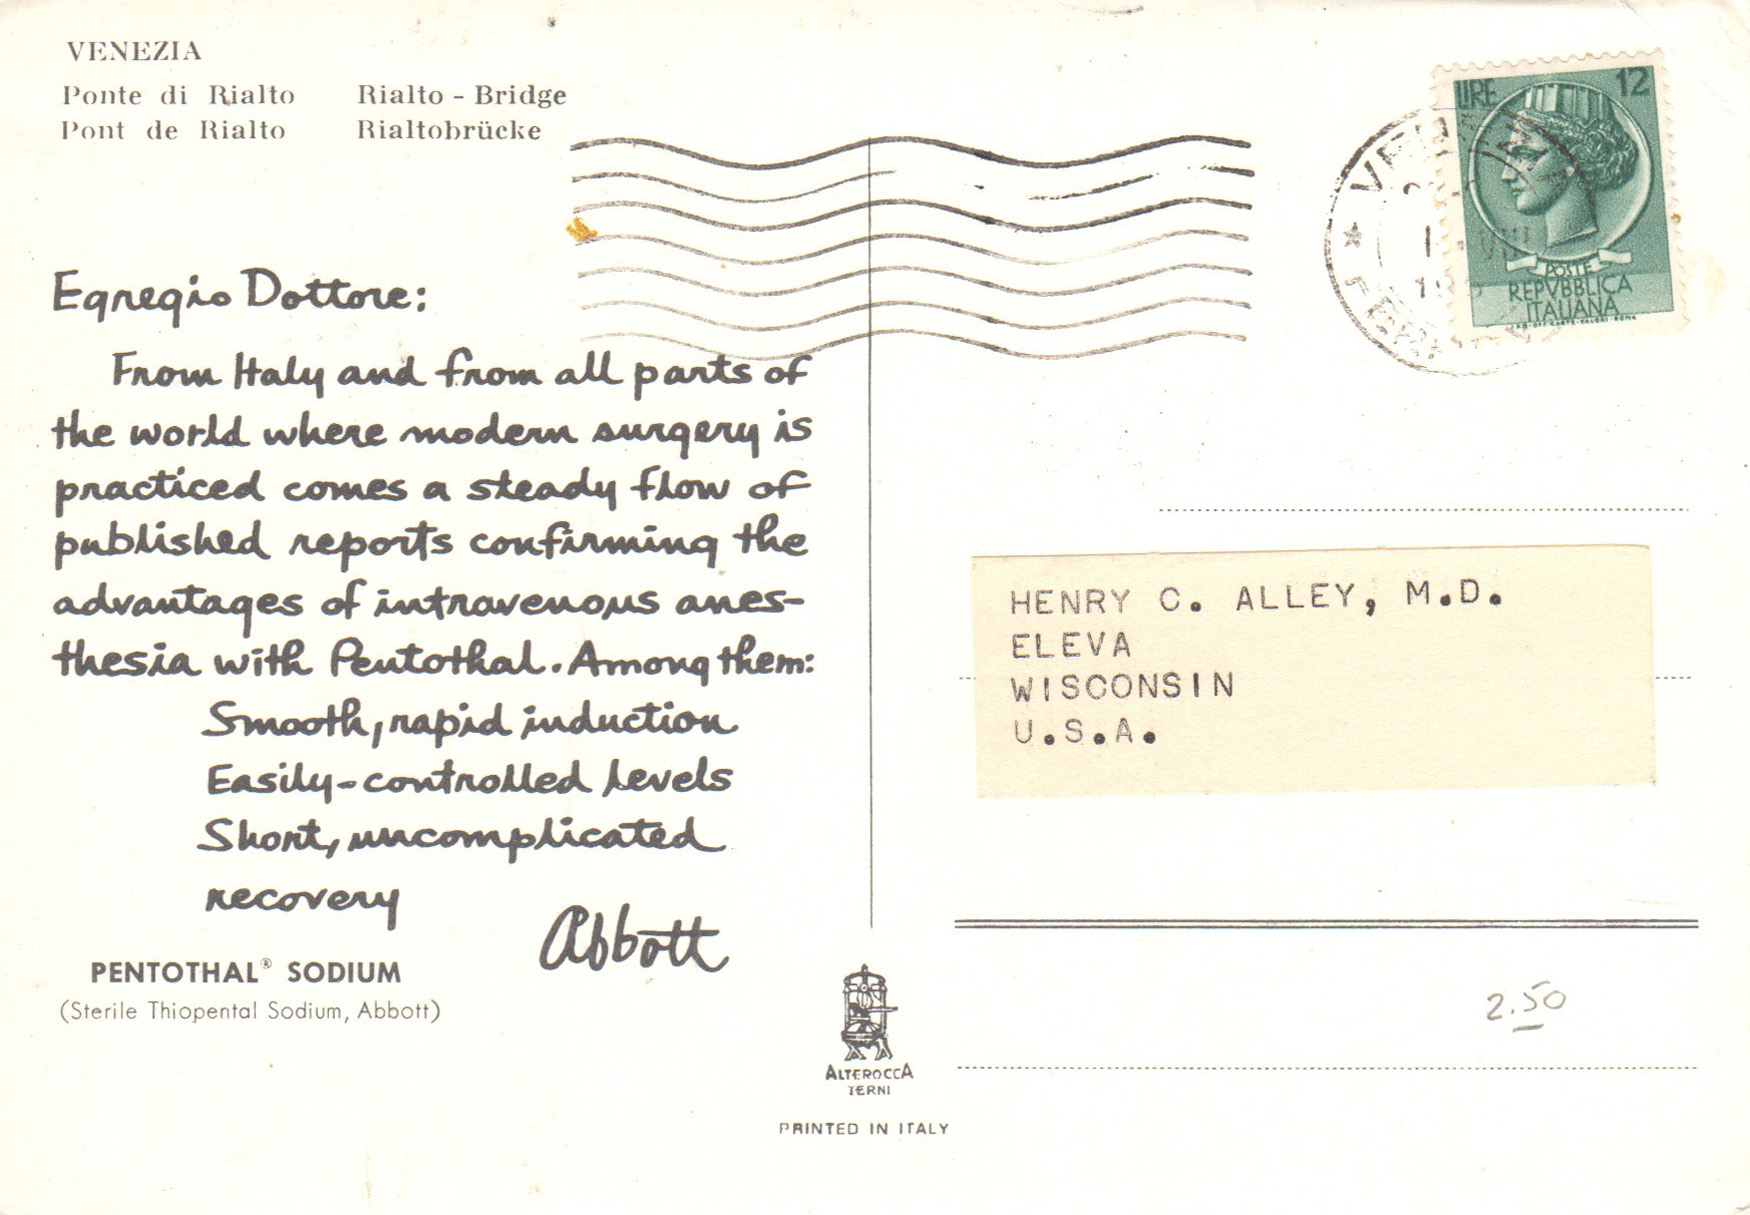 VENEZIA
Ponte di Rialto Rialto - Bridge
Pont de Rialto Rialtobrücke
LIRE 12
POSTE
REPVBBLICA
ITALIANA
Egregio Dottore:
From Italy and from all parts of
the world where modern surgery is
practiced comes a steady flow of
published reports confirming the
advantages of intravenous anes-
thesia with Pentothal. Among them:
Smooth, rapid induction
Easily-controlled levels
Short, uncomplicated
recovery
Abbott
PENTOTHAL® SODIUM
(Sterile Thiopental Sodium, Abbott)
HENRY C. ALLEY, M.D.
ELEVA
WISCONSIN
U.S.A.
2.50
ALTEROCCA
TERNI
PRINTED IN ITALY